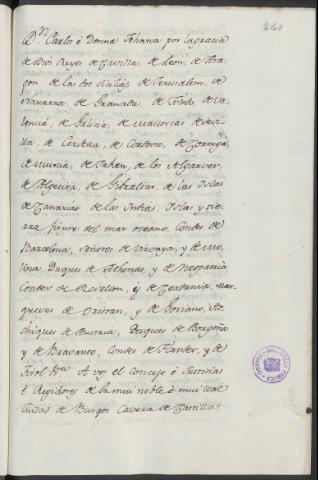 260
Dn. Carlos é Donna Johana por la gracia
de Dios Reyes de Castilla, de Leon, de Ara
gon de las dos Sicilias, de Jerusalem, de
Navarra, de Granada, de Toledo, de Va
lencia, de Galicia, de Mallorcas de Sevi
lla, de Cerdeña, de Cordova, de Corcega,
de Murcia, de Jahen, de los Algarves,
de Algecira, de Gibraltar, de las Islas
de Canarias de las Indias, Islas y tie
rra firme del mar oceano, Condes de
Barcelona, Señores de Vizcaya, y de Mo
lina, Duques de Athenas, y de Neopatria
Condes de Rosellon, y de Cerdania, mar
queses de Oristan, y de Goziano, Ar
chiduques de Austria, Duques de Borgoña
y de Bravante, Condes de Flandes, y de
Tirol &a. A vos el concejo é Justicias
é Regidores de la mui noble é mui leal
Ciudad de Burgos Caveza de Castilla